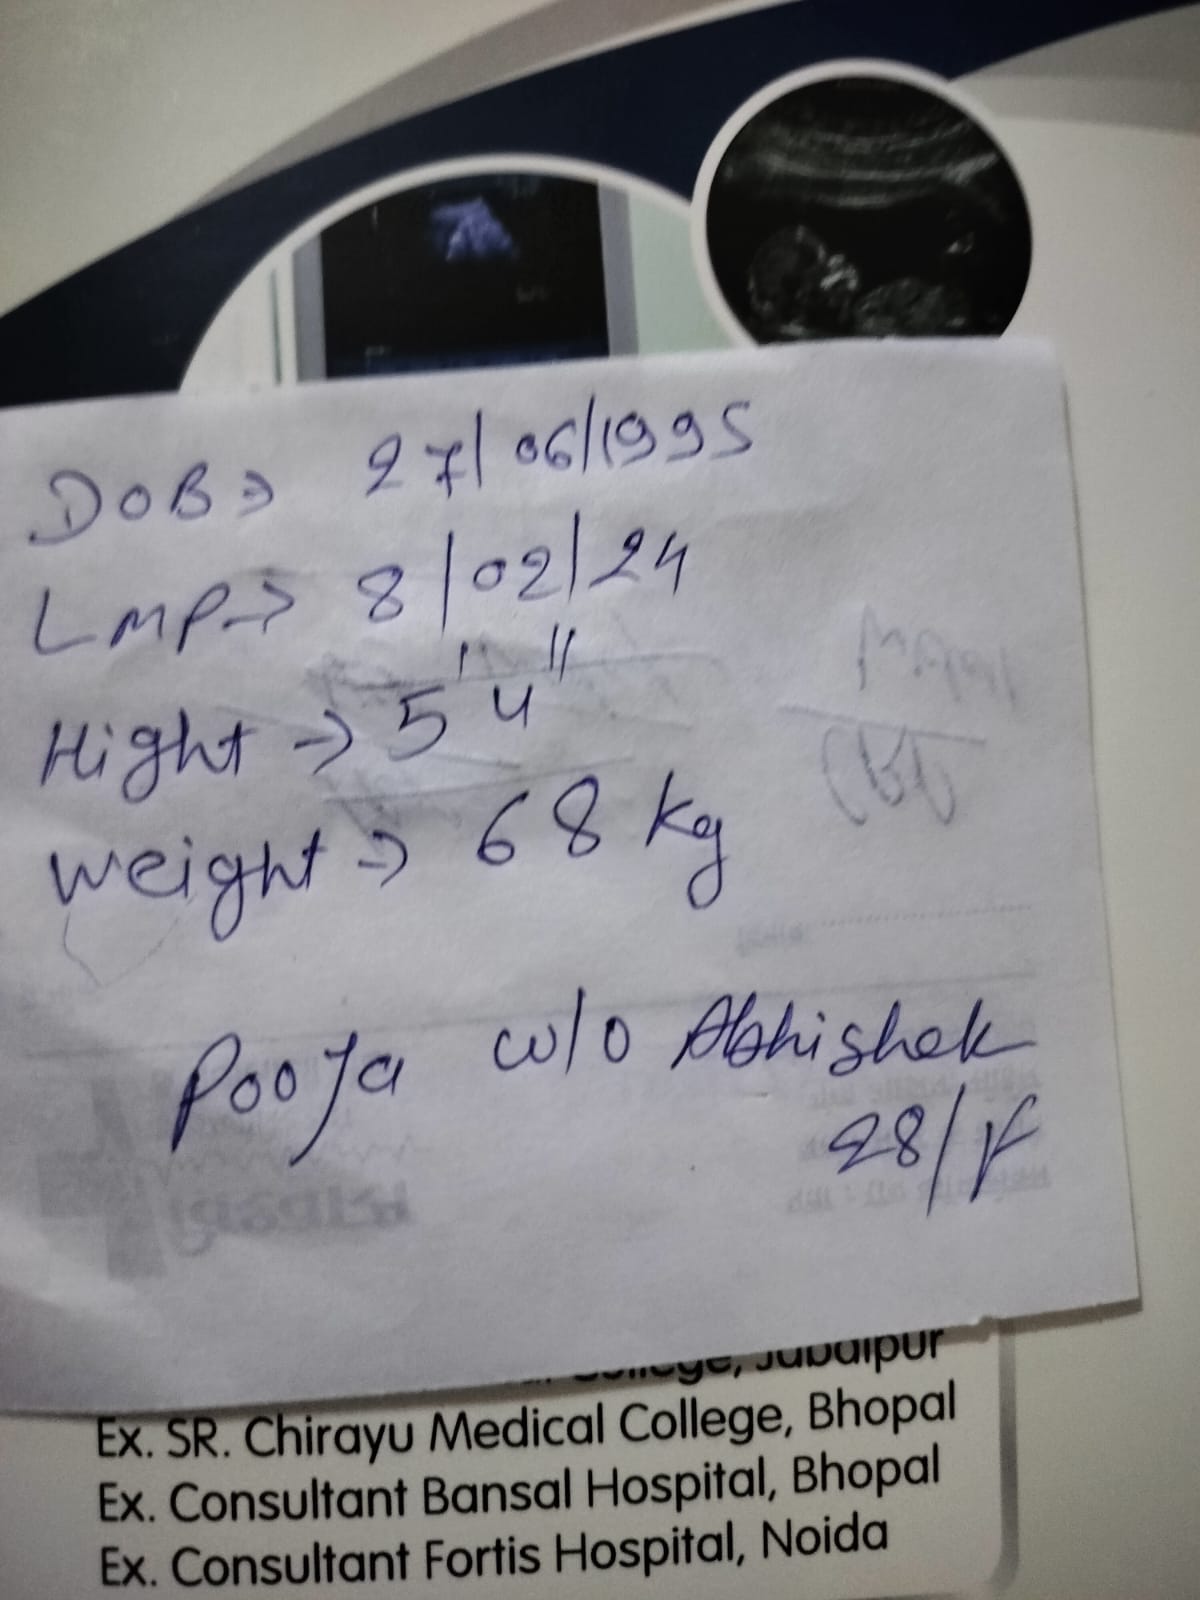 DOB → 27/06/1995
LMP → 8/02/24
Hight → 5' 4"
weight → 68 kg
Pooja w/o Abhishek
28/F
College, Jabalpur
Ex. SR. Chirayu Medical College, Bhopal
Ex. Consultant Bansal Hospital, Bhopal
Ex. Consultant Fortis Hospital, Noida